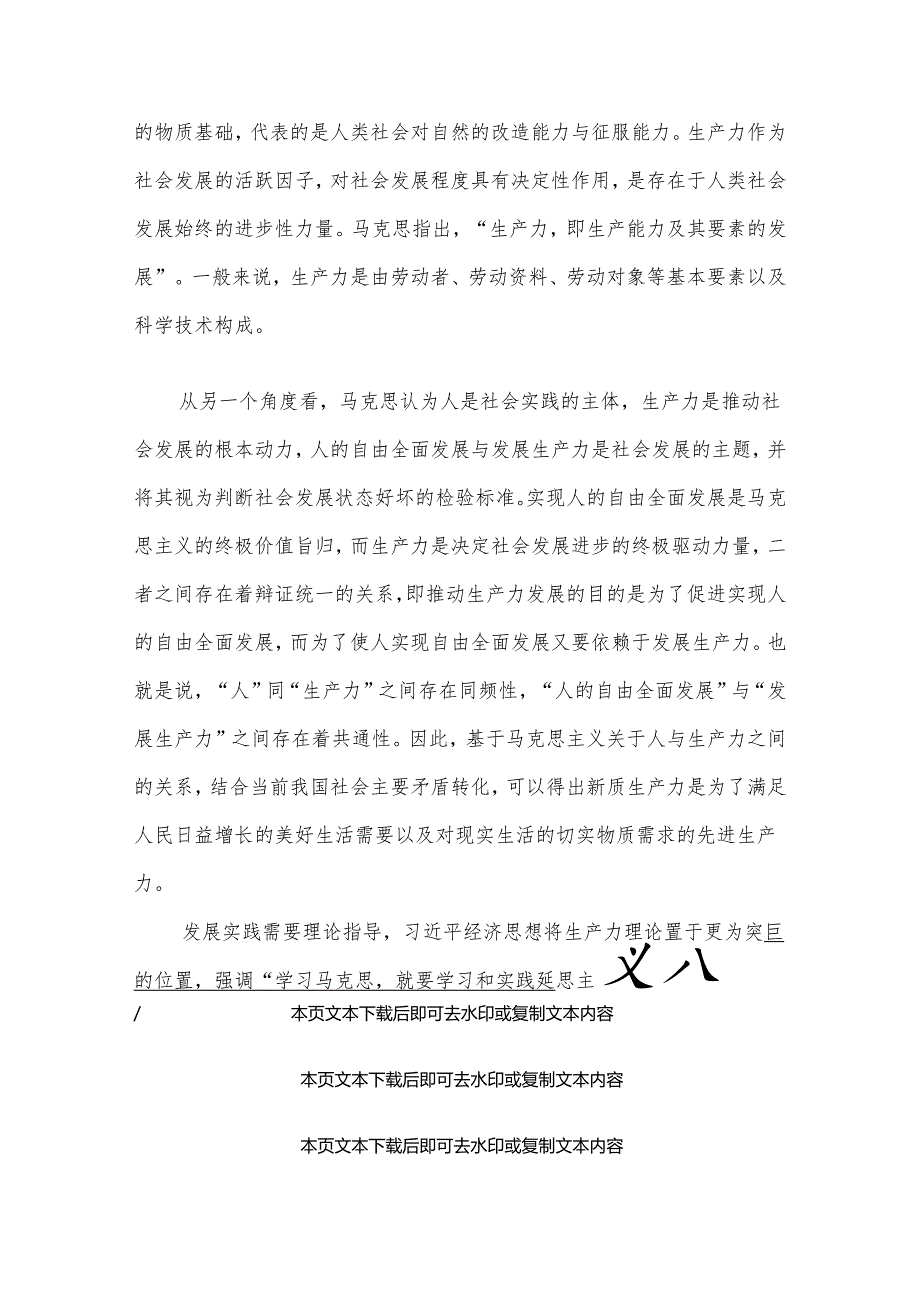 的物质基础，代表的是人类社会对自然的改造能力与征服能力。生产力作为
社会发展的活跃因子，对社会发展程度具有决定性作用，是存在于人类社会
发展始终的进步性力量。马克思指出，“生产力，即生产能力及其要素的发
展”。一般来说，生产力是由劳动者、劳动资料、劳动对象等基本要素以及
科学技术构成。
从另一个角度看，马克思认为人是社会实践的主体，生产力是推动社
会发展的根本动力，人的自由全面发展与发展生产力是社会发展的主题，并
将其视为判断社会发展状态好坏的检验标准。实现人的自由全面发展是马克
思主义的终极价值旨归，而生产力是决定社会发展进步的终极驱动力量，二
者之间存在着辩证统一的关系，即推动生产力发展的目的是为了促进实现人
的自由全面发展，而为了使人实现自由全面发展又要依赖于发展生产力。也
就是说，“人”同“生产力”之间存在同频性，“人的自由全面发展”与“发
展生产力”之间存在着共通性。因此，基于马克思主义关于人与生产力之间
的关系，结合当前我国社会主要矛盾转化，可以得出新质生产力是为了满足
人民日益增长的美好生活需要以及对现实生活的切实物质需求的先进生产
力。
发展实践需要理论指导，习近平经济思想将生产力理论置于更为突巨
的位置，强调“学习马克思，就要学习和实践延思主 义八
/ 本页文本下载后即可去水印或复制文本内容
本页文本下载后即可去水印或复制文本内容
本页文本下载后即可去水印或复制文本内容